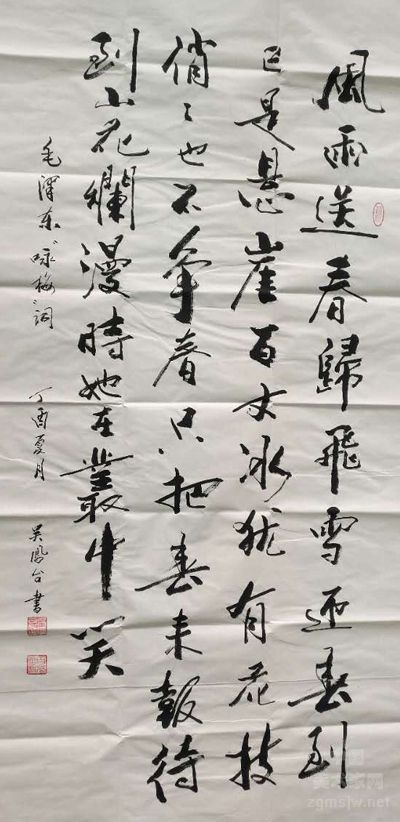 風雨送春歸飛雪迎春到
已是悬崖百丈冰犹有花枝
俏々也不争春只把春来報待
到山花爛漫時她在叢中笑
毛澤东“咏梅”词 丁酉夏月 吴鳳台書
美术家网
zgmsjw.net